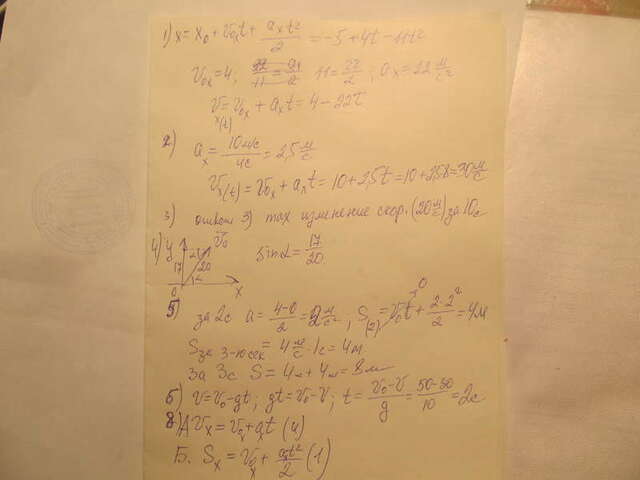 1) x = x₀ + v₀ₓt + aₓt²/2 = -5 + 4t - 11t²
v₀ₓ = 4; 11 = 22/2; aₓ = 22 м/с²
v x(t) = v₀ₓ + aₓt = 4 - 22t
2) aₓ = 10 м/с / 4с = 2,5 м/с
vₓ(t) = v₀ₓ + aₓt = 10 + 2,5t = 10 + 2,5·8 = 30 м/с
3) ответ 3) max изменение скор. (20 м/с) за 10с
4) y v₀ sinα = 17/20
17 20 α
0 x
5) за 2с a = 4-0/2 = 2 м/с², S(2) = v₀t + 2·2²/2 = 4м
0
Sза 3-ю сек = 4 м/с · 1с = 4м
за 3с S = 4м + 4м = 8м
6) v = v₀ - gt; gt = v₀ - v; t = v₀-v/g = 50-30/10 = 2с
8) А vₓ = v₀ₓ + aₓt (4)
Б. Sₓ = v₀ₓ + aₓt²/2 (1)